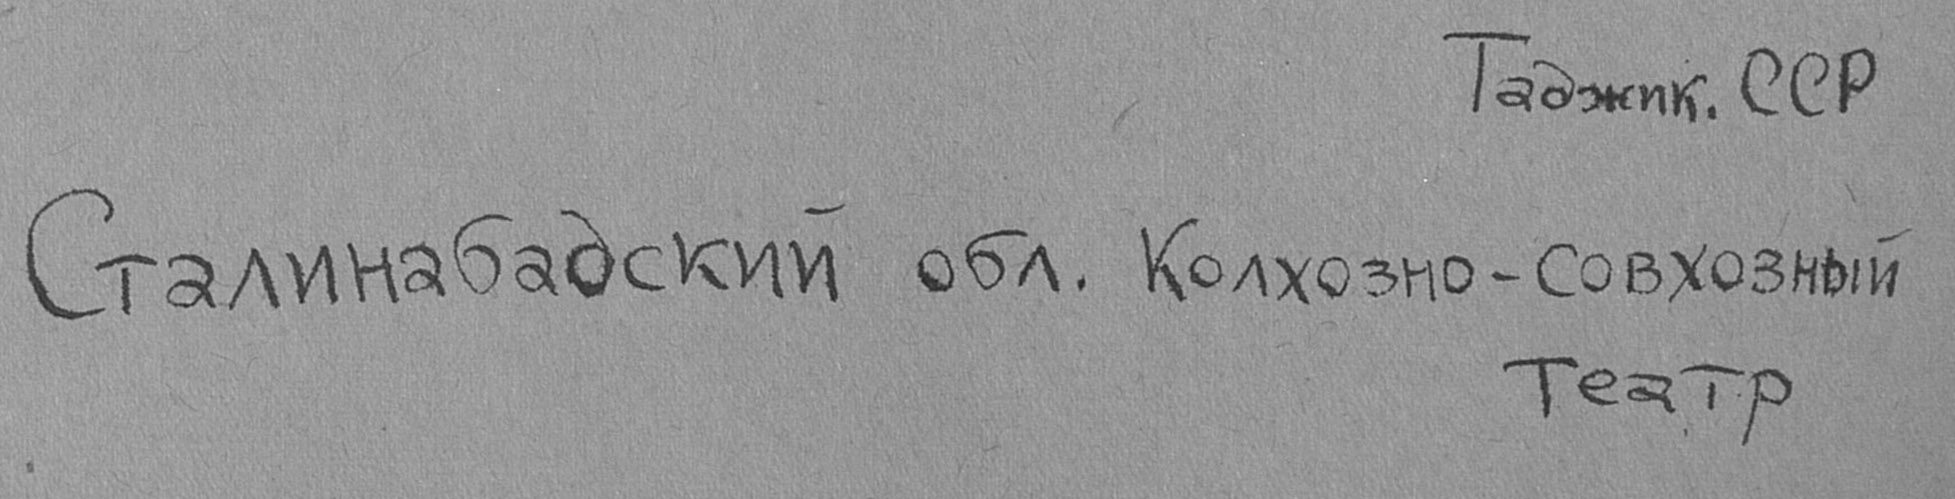 Таджик. ССР
Сталинабадский обл. Колхозно-совхозный
театр